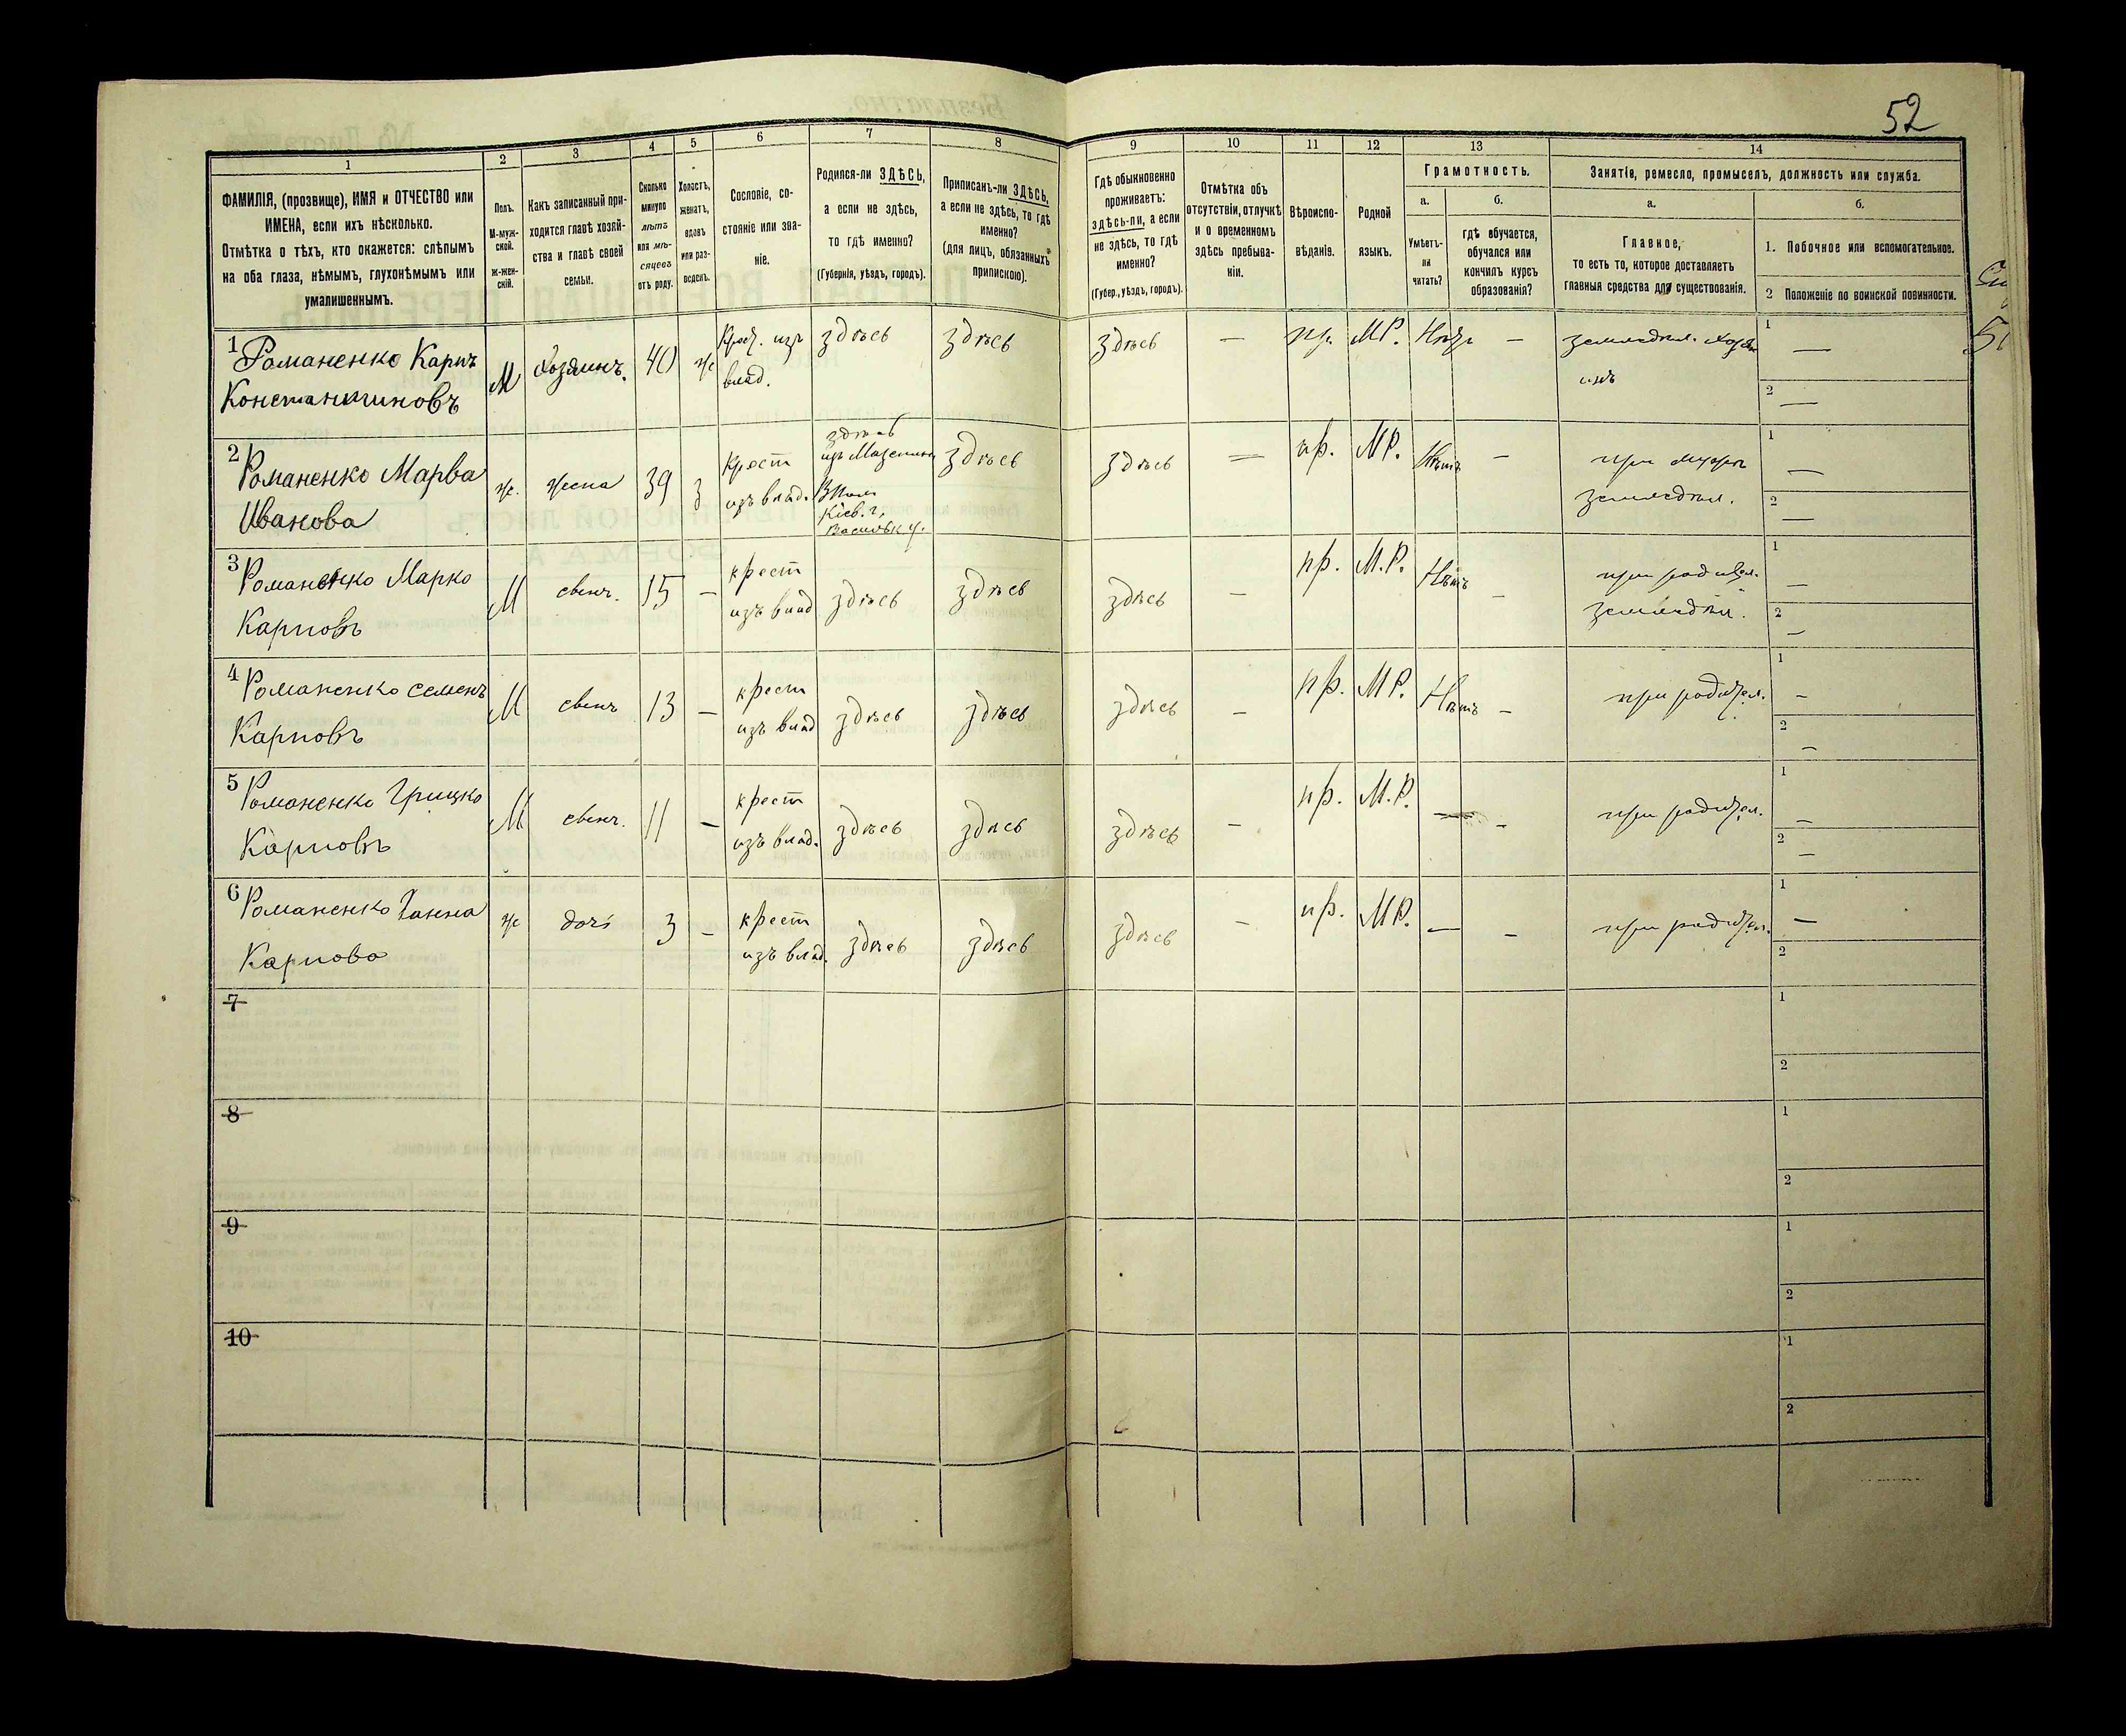 52
1
2
3
4
5
6
7
8
9
10
11
12
13
14
ФАМИЛІЯ, (прозвище), ИМЯ и ОТЧЕСТВО или
ИМЕНА, если ихъ нѣсколько.
Отмѣтка о тѣхъ, кто окажется: слѣпымъ
на оба глаза, нѣмымъ, глухонѣмымъ или
умалишеннымъ.
Полъ.
М-муж-
ской.
Ж-жен-
скій.
Какъ записанный при-
ходится главѣ хозяй-
ства и главѣ своей
семьи.
Сколько
минуло
лѣтъ
или мѣ-
сяцевъ
отъ роду.
Холостъ,
женатъ,
вдовъ
или раз-
веденъ.
Сословіе, со-
стояніе или зва-
ніе.
Родился-ли ЗДѢСЬ,
а если не здѣсь,
то гдѣ именно?
(Губернія, уѣздъ, городъ).
Приписанъ-ли ЗДѢСЬ,
а если не здѣсь, то гдѣ
именно?
(для лицъ, обязанныхъ
припискою).
Гдѣ обыкновенно
проживаетъ:
здѣсь-ли, а если
не здѣсь, то гдѣ
именно?
(Губер., уѣздъ, городъ).
Отмѣтка объ
отсутствіи, отлучкѣ
и о временномъ
здѣсь пребыва-
ніи.
Вѣроиспо-
вѣданіе.
Родной
языкъ.
Грамотность.
а.
Умѣетъ-
ли
читать?
б.
гдѣ обучается,
обучался или
кончилъ курсъ
образованія?
Занятіе, ремесло, промыселъ, должность или служба.
а.
Главное,
то есть то, которое доставляетъ
главныя средства для существованія.
б.
1. Побочное или вспомогательное.
2 Положеніе по воинской повинности.
1 Романенко Карпъ
Константиновъ
М
Хозяинъ.
40
ж
Крест. изъ
влад.
здѣсь
здѣсь
здѣсь
—
пр.
МР.
Нѣтъ
—
земледѣл. хозя
инъ
1 —
2 —
2 Романенко Марва
Иванова
ж.
жена
39
з
Крест
изъ влад.
здѣсь
Кіев. г.
Васильк у.
здѣсь
здѣсь
—
пр.
МР.
Нѣтъ
—
при мужѣ
земледѣл.
1 —
2 —
3 Романенко Марко
Карповъ
М
сынъ.
15
—
крест
изъ влад
здѣсь
здѣсь
здѣсь
—
пр.
М.Р.
Нѣтъ
—
при родител.
земледѣл.
1 —
2 —
4 Романенко Семенъ
Карповъ
М
сынъ
13
—
крест
изъ влад
здѣсь
здѣсь
здѣсь
—
пр.
МР.
Нѣтъ
—
при родител.
1 —
2 —
5 Романенко Грицко
Карповъ
М
сынъ.
11
—
крест
изъ влад.
здѣсь
здѣсь
здѣсь
—
пр.
М.Р.
—
—
при родител.
1 —
2 —
6 Романенко Ганна
Карпова
ж
дочь
3
—
крест
изъ влад.
здѣсь
здѣсь
здѣсь
—
пр.
МР.
—
—
при родител.
1 —
2
7
1
2
8
1
2
9
1
2
10
1
2